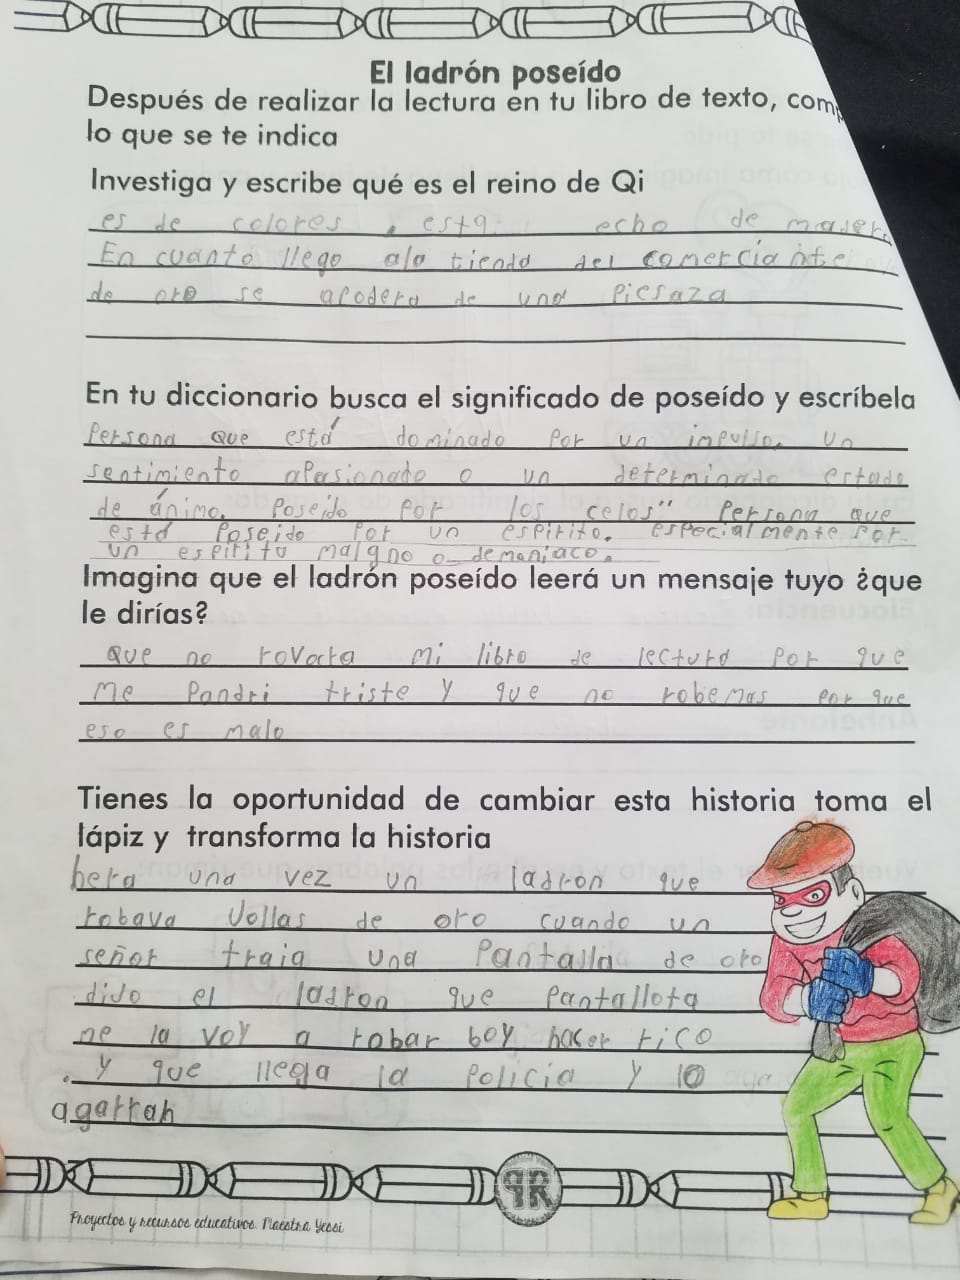 El ladrón poseído
Después de realizar la lectura en tu libro de texto, comp
lo que se te indica
Investiga y escribe qué es el reino de Qi
es de colores, esta echo de madera
En cuanto llego ala tienda del comercia
de oro se apodera de una Piesaza
En tu diccionario busca el significado de poseído y escríbela
Persona que está dominado por un inpulso. un
sentimiento apasionado o un determinado estado
de ánimo. Poseido por los celos" Persona que
está Poseido Por un espirito. especialmente por
un espiritu maligno o demaniaco.
Imagina que el ladrón poseído leerá un mensaje tuyo ¿que
le dirías?
que no rovara mi libro de lectura por que
me Pandri triste y que no robe mas por que
eso es malo
Tienes la oportunidad de cambiar esta historia toma el
lápiz y transforma la historia
hera una vez un ladron que
robava Jollas de oro cuando un
señor traia una Pantalla de oro
dijo el ladron que Pantallota
me la voy a robar boy hacer rico
y que llega la Policia y lo
agarrah
PR
Proyectos y recursos educativos. Maestra Yessi